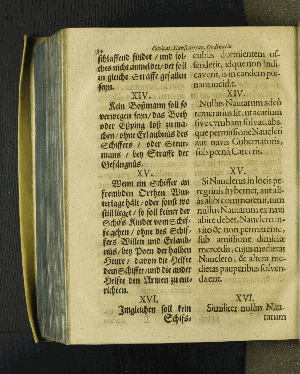 schlaffend findet / und sol-
ches nicht anmeldet / der soll
in gleiche Straffe gefallen
seyn.
XIV.
Kein Boßmann soll so
verwegen seyn / das Both
oder
chen / ohne Erlaubnüs des
Schiffers / oder Steur-
mans / bey Straffe der
Gefängnüs.
XV.
Wenn ein Schiffer an
frembden Orthen Win-
terlage hält / oder sonst wo
still lieget / so soll keiner der
Schiffs Kinder vom Schif-
fe gehen / ohne des Schif-
fers Willen und Erlaub-
nüs / bey Poen der halben
Heure / davon die Helfte
dem Schiffer / und die ander
Helfte den Armen zu ent-
richten.
XVI.
Imgleichen soll kein
Schifs-
cubiis dormientem of-
fenderit, idque non indi-
caverit, is in eandem pœ-
nam incidit.
XIV.
Nullus Nautarum adeò
temerarius sit, ut navim
sive cymbam solvat, abs-
que permissione Naucleri
aut navis Gubernatoris,
sub pœna Carceris.
XV.
Si Nauclerus in locis pe-
regrinis hybernet, aut ali-
as alibi commoretur, tum
nullus Nautarum ex navi
abire debet, Nauclero in-
vito & non permittente,
sub amissione dimidiæ
mercedis, cujus medietas
Nauclero, & altera me-
dietas pauperibus solven-
da erit.
XVI.
Similiter nullus Nau-
tarum